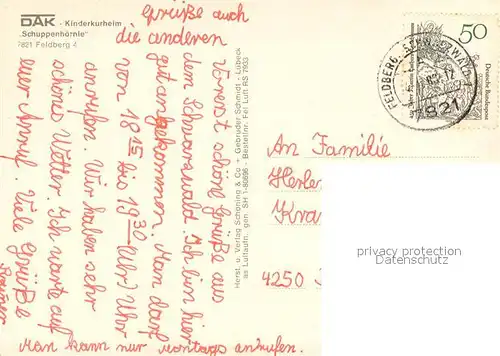 DAK - Kinderkurheim
"Schuppenhörnle"
7821 Feldberg 4
Grüße auch
die anderen
Vorerst schöne Grüße aus
dem Schwarzwald. Ich bin hier
gut angekommen. Man darf
von 18 15 bis 19 30 (Uhr) Uhr
anrufen. Wir haben sehr
schönes Wetter. Ich warte auf
euer Anruf. Viele Grüße
Rainer
Man kann nur Montags anrufen.
Herst. u. Verlag Schöning & Co + Gebrüder Schmidt - Lübeck
als Luftaufn. gen SH 1-80696 - Bestellnr. Fel Luft RS 7933
50
Deutsche Bundespost
FELDBERG, SCHWARZWALD
7821
An Familie
Herle
Kra
4250
privacy protection
Datenschutz